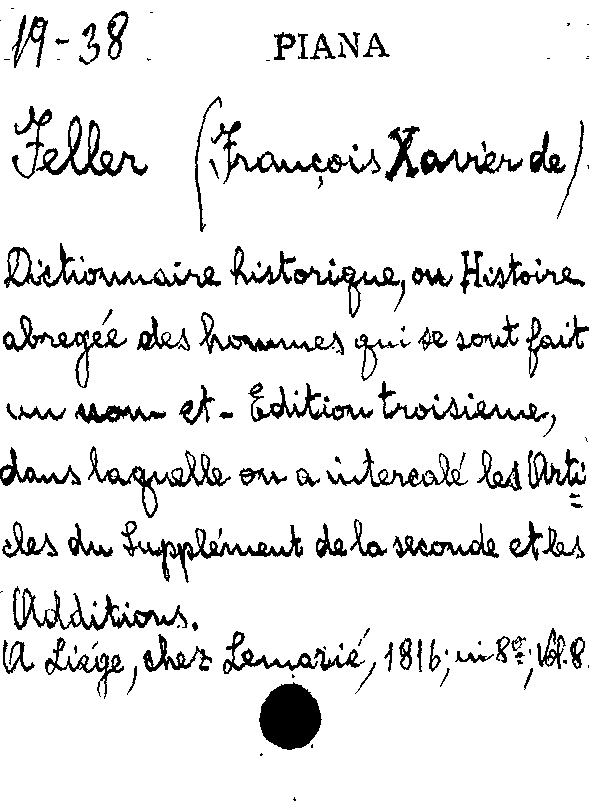 19-38 PIANA
Feller (François Xavier de)
Dictionnaire historique, ou Histoire
abregée des hommes qui se sont fait
un nom et - Edition troisieme,
dans laquelle on a intercalé les Arti
cles du Supplément de la seconde et les
Additions.
A Liége, chez Lemarié, 1816; in 8º; Vol. 8.